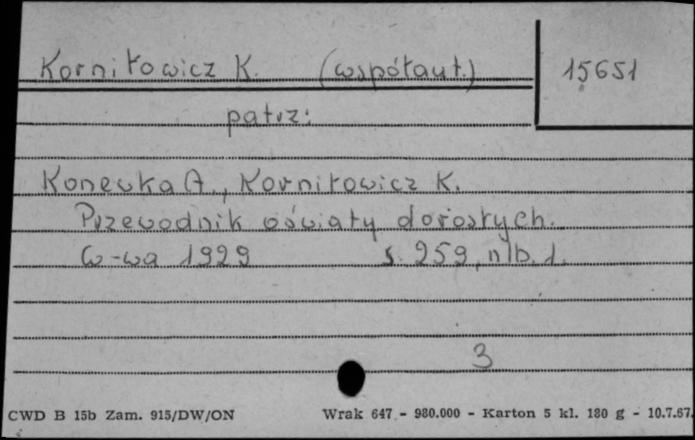 Korniłowicz K. (współaut.) 15651
patrz:
Konewka A., Korniłowicz K.
Przewodnik oświaty dorosłych.
W-wa 1929 s. 259, nlb. 1.
3
CWD B 15b Zam. 915/DW/ON Wrak 647 - 980.000 - Karton 5 kl. 180 g - 10.7.67.